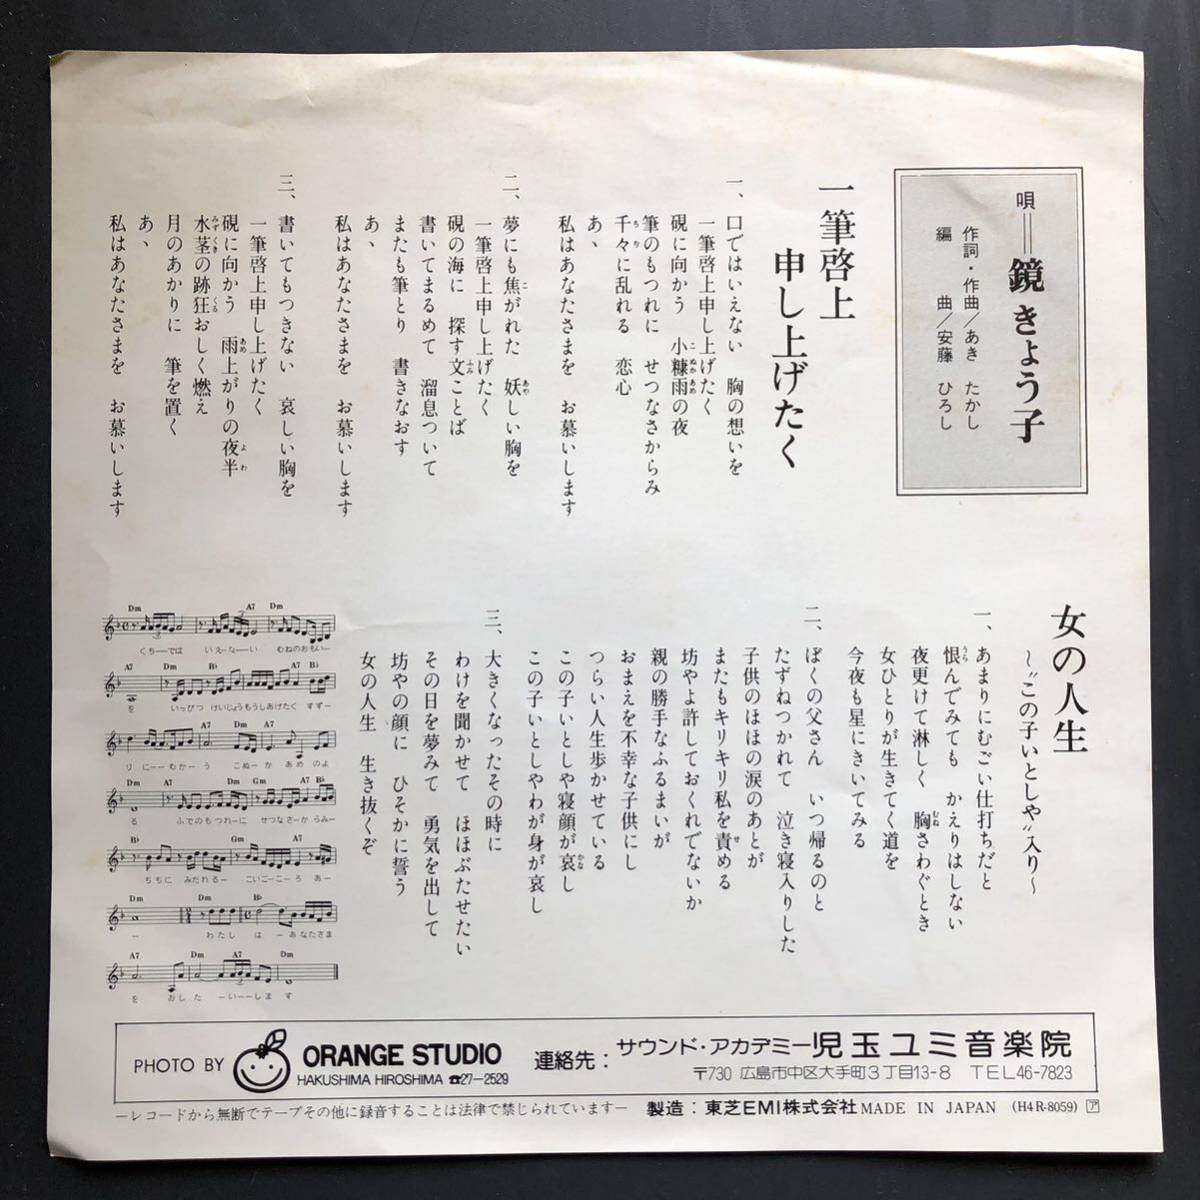 唄＝鏡きょう子
作詞・作曲／あき たかし
編 曲／安藤 ひろし
一筆啓上
申し上げたく
一、口ではいえない 胸の想いを
一筆啓上申し上げたく
硯に向かう 小糠雨の夜
筆のもつれに せつなさからみ
千々に乱れる 恋心
あゝ
私はあなたさまを お慕いします
二、夢にも焦がれた 妖しい胸を
一筆啓上申し上げたく
硯の海に 探す文ことば
書いてまるめて 溜息ついて
またも筆とり 書きなおす
あゝ
私はあなたさまを お慕いします
三、書いてもつきない 哀しい胸を
一筆啓上申し上げたく
硯に向かう 雨上がりの夜半
水茎の跡狂おしく燃え
月のあかりに 筆を置く
あゝ
私はあなたさまを お慕いします
女の人生
〜"この子いとしや"入り〜
一、あまりにむごい仕打ちだと
恨んでみても かえりはしない
夜更けて淋しく 胸さわぐとき
女ひとりが生きてく道を
今夜も星にきいてみる
二、ぼくの父さん いつ帰るのと
たずねつかれて 泣き寝入りした
子供のほほの涙のあとが
またもキリキリ私を責める
坊やよ許しておくれでないか
親の勝手なふるまいが
おまえを不幸な子供にし
つらい人生歩かせている
この子いとしや寝顔が哀し
この子いとしやわが身が哀し
三、大きくなったその時に
わけを聞かせて ほほぶたせたい
その日を夢みて 勇気を出して
坊やの顔に ひそかに誓う
女の人生 生き抜くぞ
Dm A7 Dm
くちーでは いえーなーい むねのおもいー
A7 Dm B♭ A7 B♭
を いっぴつ けいじょうもうしあげたく すずー
A7 Dm A7
りにーーむかーう こぬーか あめのよ
Dm Dm Gm A7 B♭
る ふでのもつれーに せつなさーからみー
B♭ Gm A7
ちぢに みだれるー こいごーこーろ あー
Dm Dm B♭
ー わたし は ーあなたさま
A7 Dm A7 Dm
を おした ーいーーします
PHOTO BY ORANGE STUDIO
HAKUSHIMA HIROSHIMA ☎27-2529
連絡先：サウンド・アカデミー児玉ユミ音楽院
〒730 広島市中区大手町3丁目13-8 TEL46-7823
—レコードから無断でテープその他に録音することは法律で禁じられています—
製造：東芝EMI株式会社 MADE IN JAPAN (H4R-8059) ア